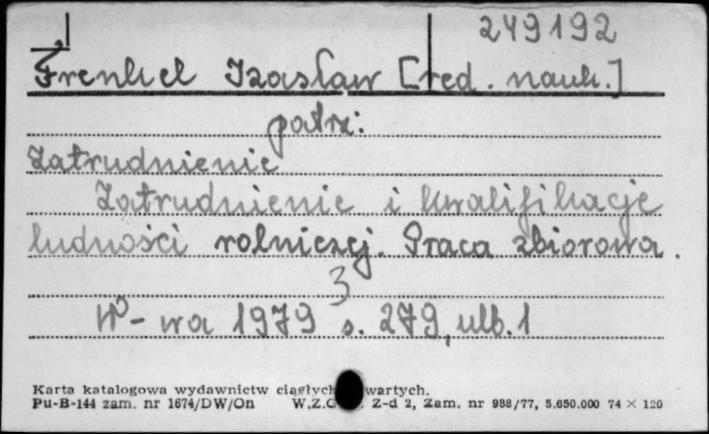 249192
Frenkel Izasław [red. nauk.]
patrz:
Zatrudnienie
Zatrudnienie i kwalifikacje
ludności rolniczej. Praca zbiorowa.
3
W-wa 1979 s. 279, ulb. 1
Karta katalogowa wydawnictw ciągłych wartych.
Pu-B-144 zam. nr 1674/DW/On W.Z.G Z-d 2, Zam. nr 988/77, 5.650.000 74 × 120